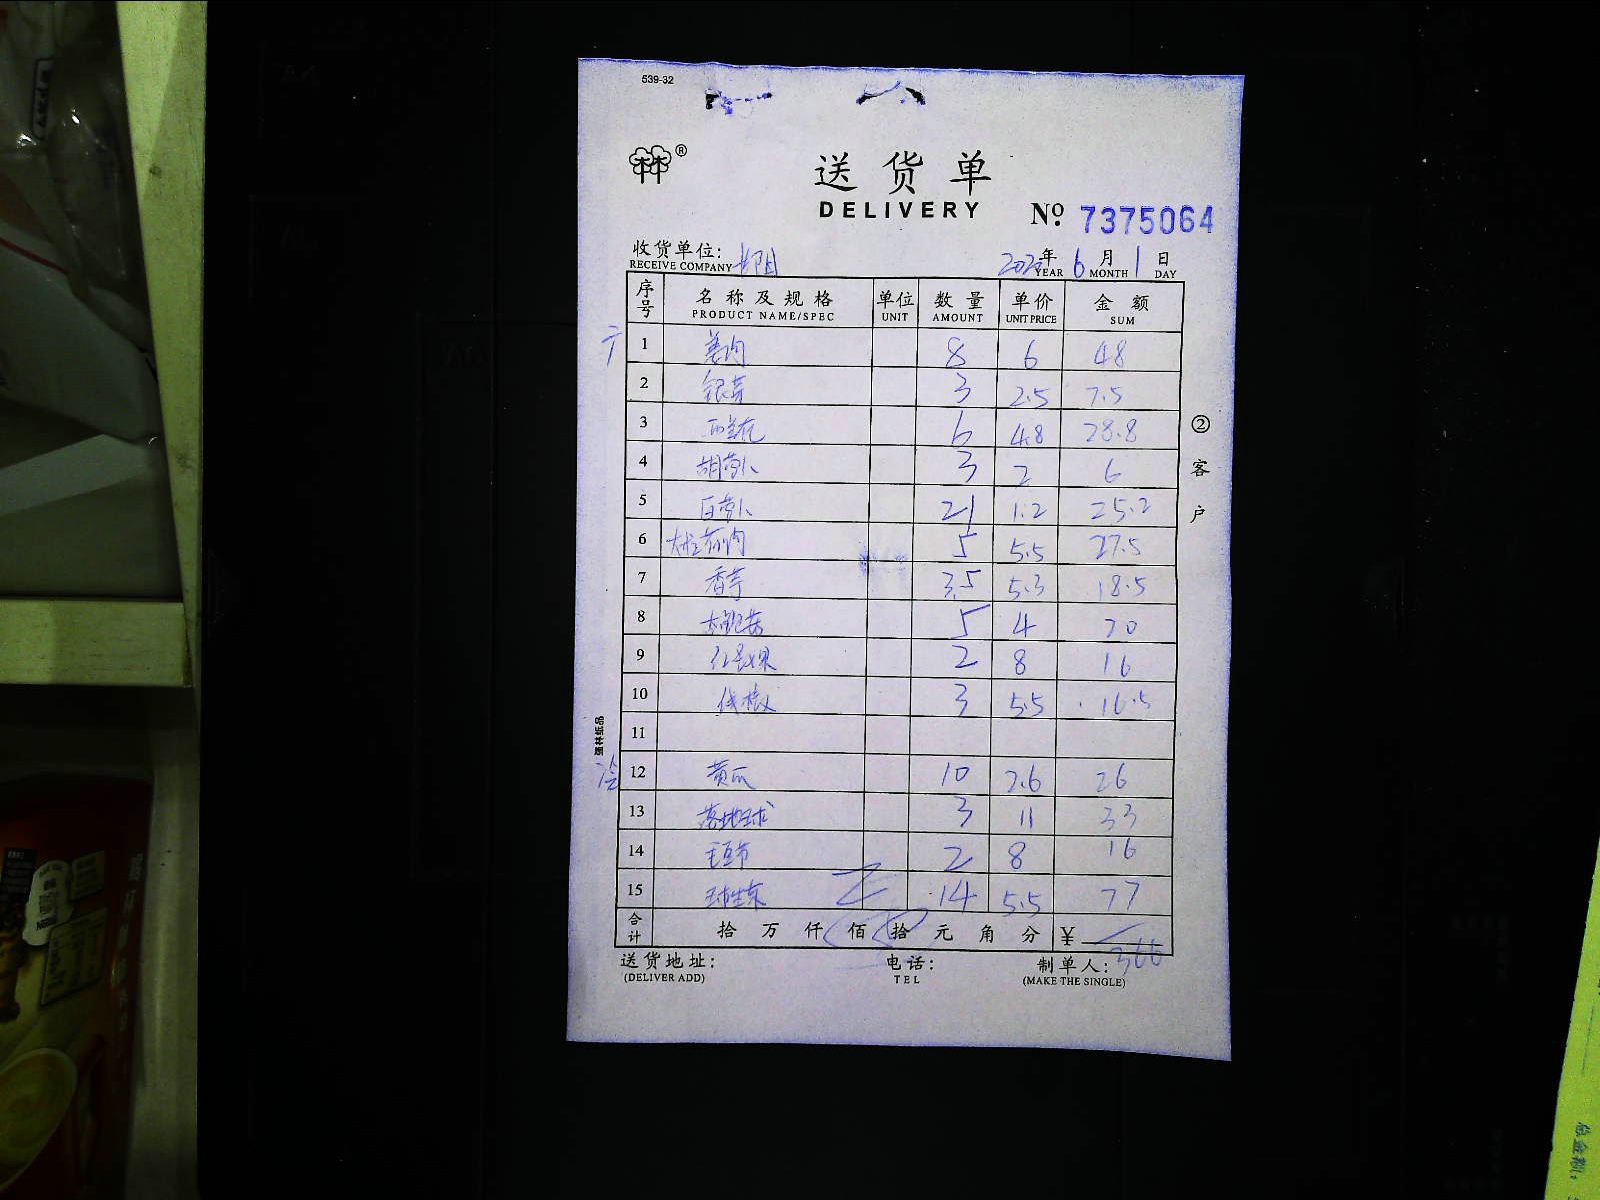 539-32
®
送货单
DELIVERY
Nº: 7375064
收货单位:
RECEIVE COMPANY
年 YEAR 6 月 MONTH 1 日 DAY
序号 名称及规格 单位 数量 单价 金额
PRODUCT NAME/SPEC UNIT AMOUNT UNIT PRICE SUM
1 姜肉 8 6 48
2 银芽 3 2.5 7.5
3 西兰花 6 4.8 28.8
4 胡萝卜 3 2 6
5 白萝卜 21 1.2 25.2
6 5 5.5 27.5
7 香芋 3.5 5.3 18.5
8 5 4 20
9 2 8 16
10 3 5.5 16.5
11
12 黄瓜 10 2.6 26
13 3 11 33
14 2 8 16
15 球生菜 14 5.5 77
合计 拾万仟佰拾元角分 ¥
366
送货地址:
(DELIVER ADD)
电话:
TEL
制单人:
(MAKE THE SINGLE)
②客户
强林纸品
总金额: